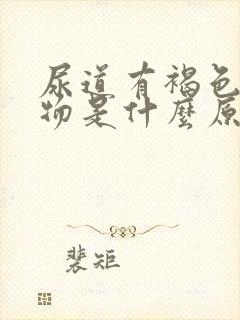 尿道有褐色
物是什麼原
裴矩